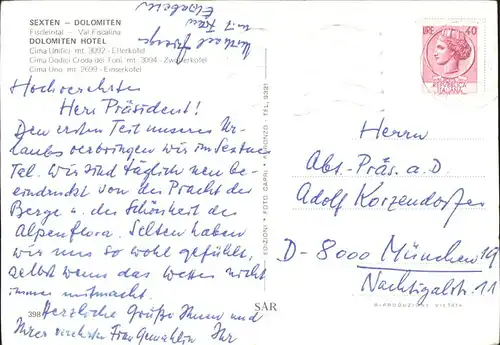 SEXTEN – DOLOMITEN
Fischleintal – Val Fiscalina
DOLOMITEN HOTEL
Cima Undici mt. 3092 - Elferkofel
Cima Dodici Croda dei Toni mt. 3094 - Zwölferkofel
Cima Uno mt. 2699 - Einserkofel
Hochverehrter
Herr Präsident!
Den ersten Teil unseres Ur-
laubs verbringen wir im Sextner
Tal. Wir sind täglich neu be-
eindruckt von der Pracht der
Berge u. der Schönheit der
Alpenflora. Selten haben
wir uns so wohl gefühlt,
selbst wenn das Wetter nicht
immer mitmacht.
Herzliche Grüße Ihnen und
Ihrer verehrten Frau Gemahlin Ihr
mit Frau
Elisabeth
398
SAR
EDIZIONI • FOTO GARRI • AURONZO - TEL. 9391
LIRE 40
REPUBBLICA
ITALIANA
Herrn
Abt.-Präs. a.D.
Adolf Korzendorfer
D-8000 München 19
Nachtigalstr. 11
RIPRODUZIONE VIETATA